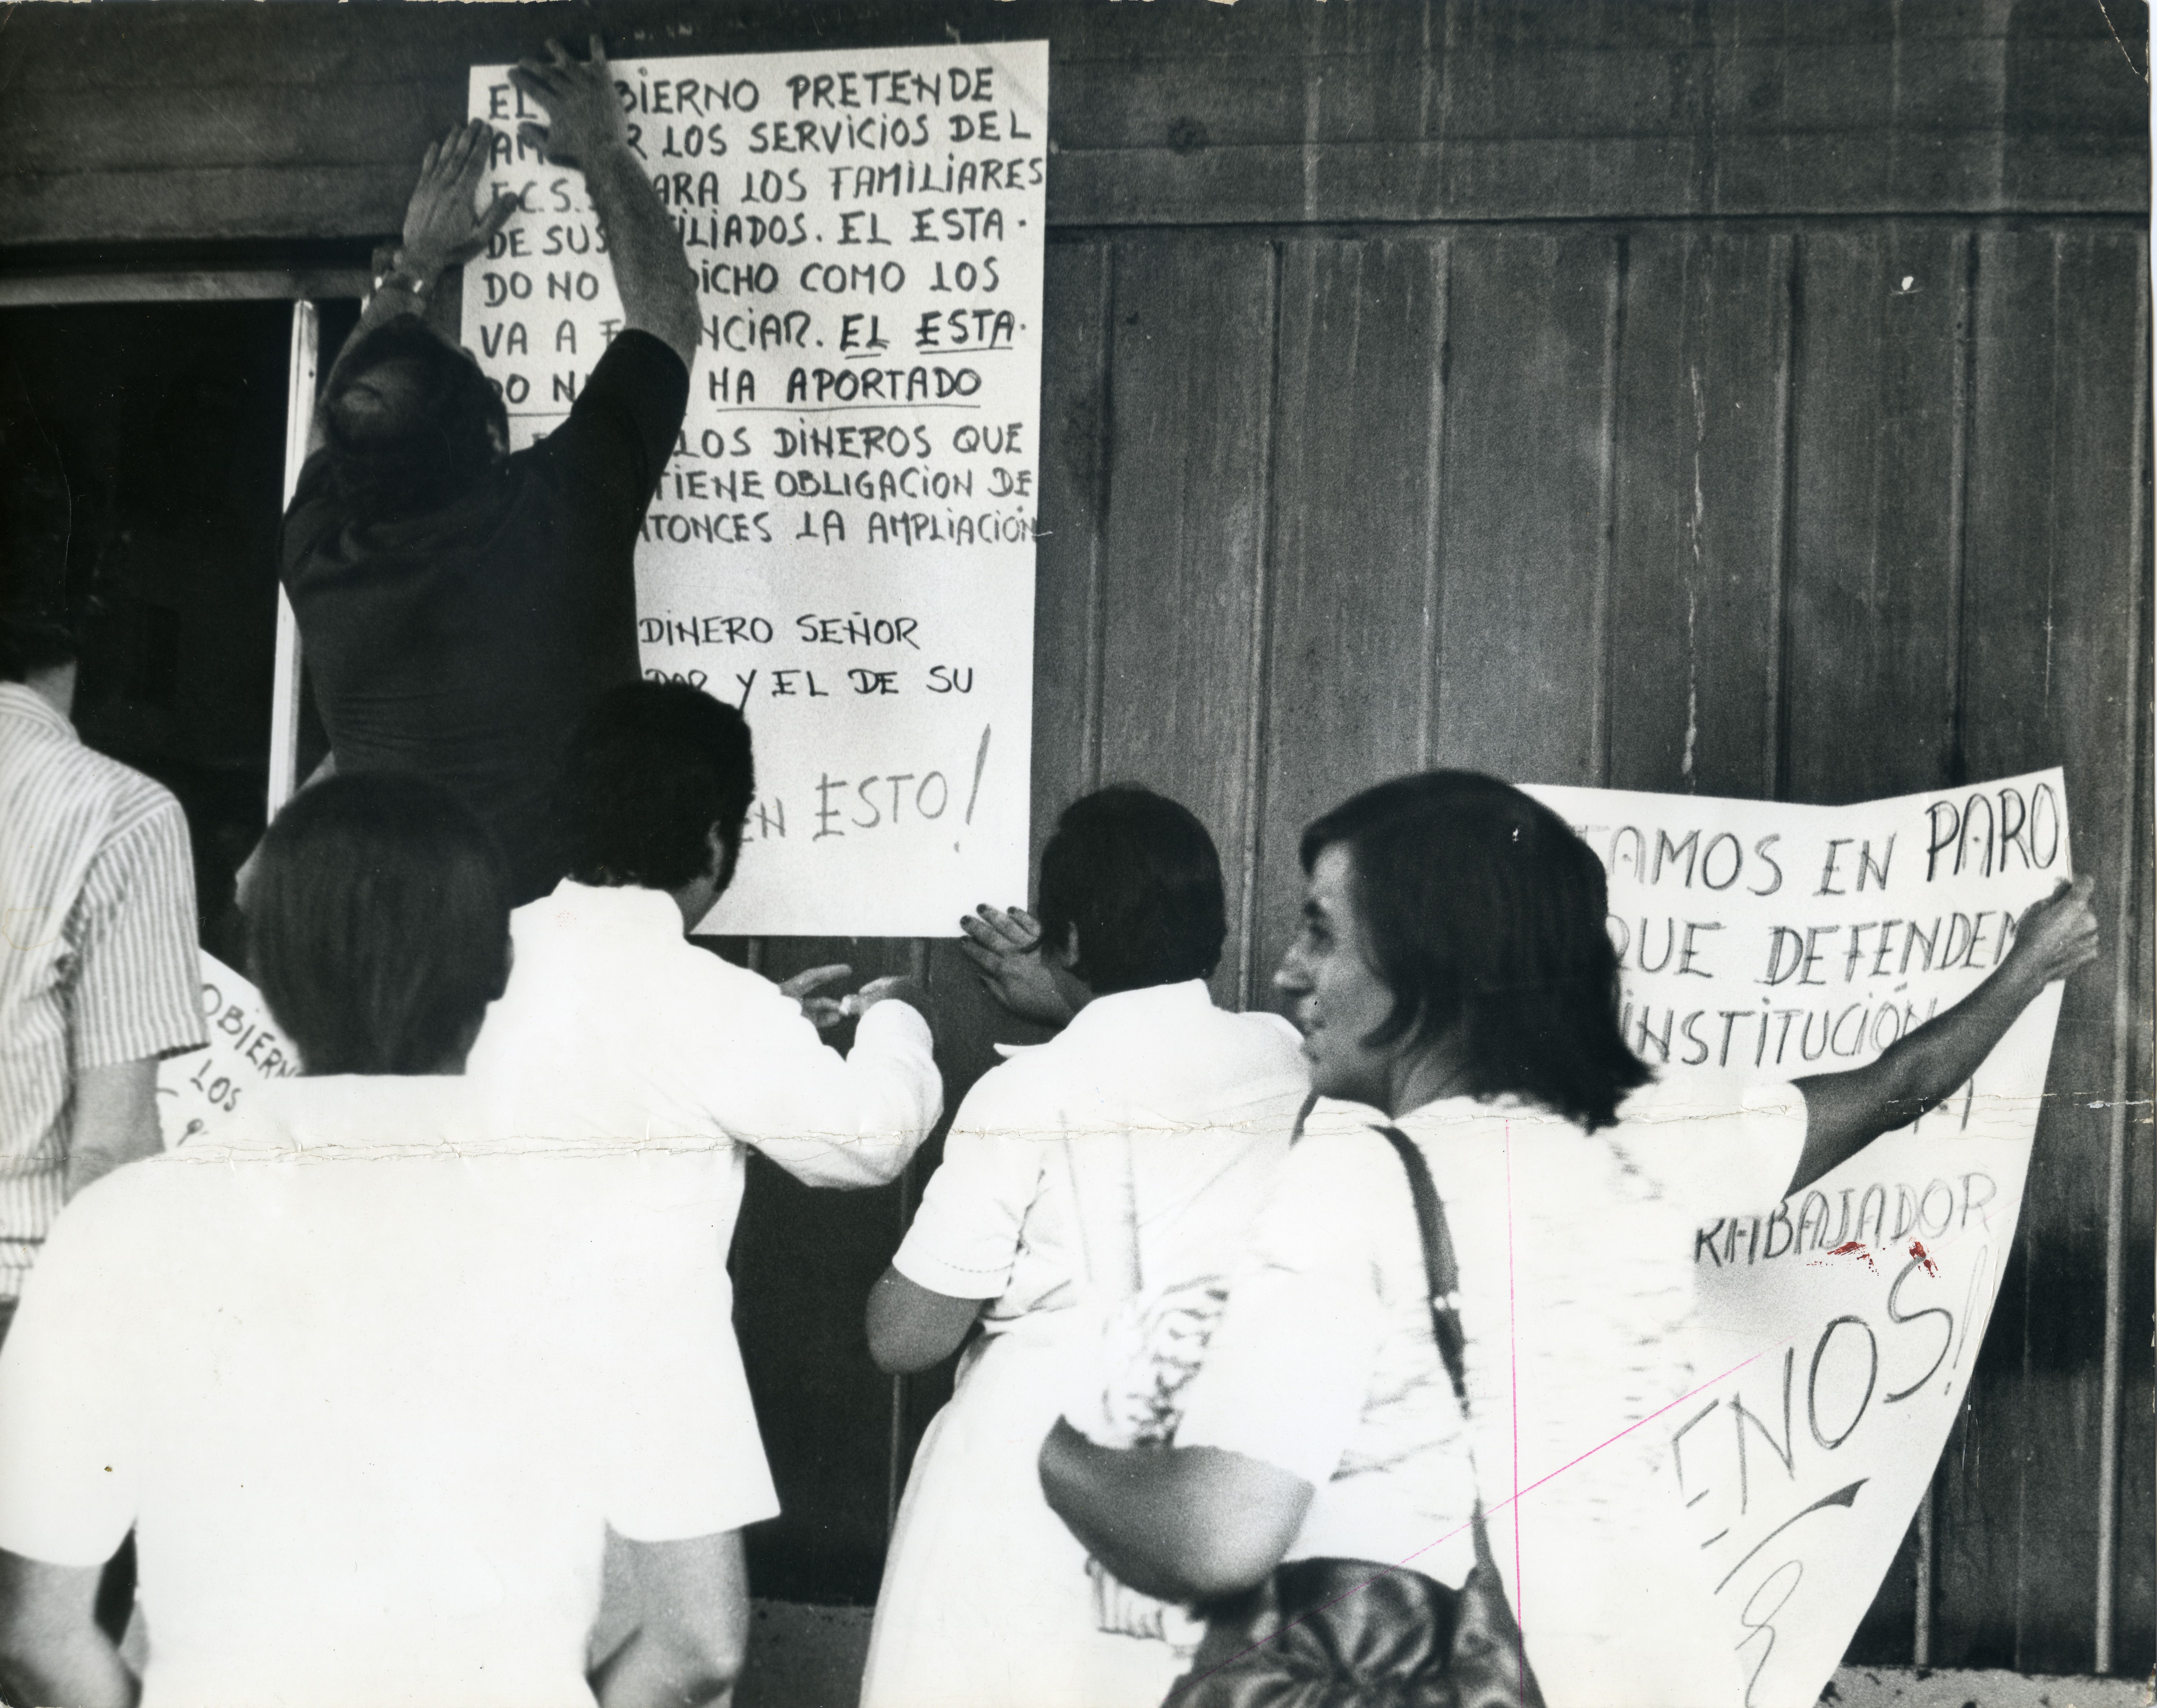 EL BIERNO PRETENDE
AM R LOS SERVICIOS DEL
I.C.S.S ARA LOS FAMILIARES
DE SUS ILIADOS. EL ESTA-
DO NO DICHO COMO LOS
VA A F NCIAR. EL ESTA-
DO N HA APORTADO
LOS DINEROS QUE
TIENE OBLIGACION DE
NTONCES LA AMPLIACIÓN
DINERO SEÑOR
DOR Y EL DE SU
EN ESTO!
OBIERN
LOS
TAMOS EN PARO
QUE DEFENDEM
INSTITUCIÓN
RABAJADOR
ENOS!